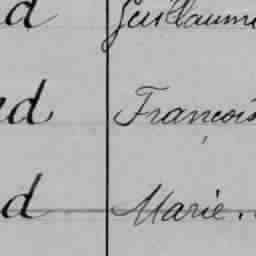 d Guillaume
d François
d Marie.